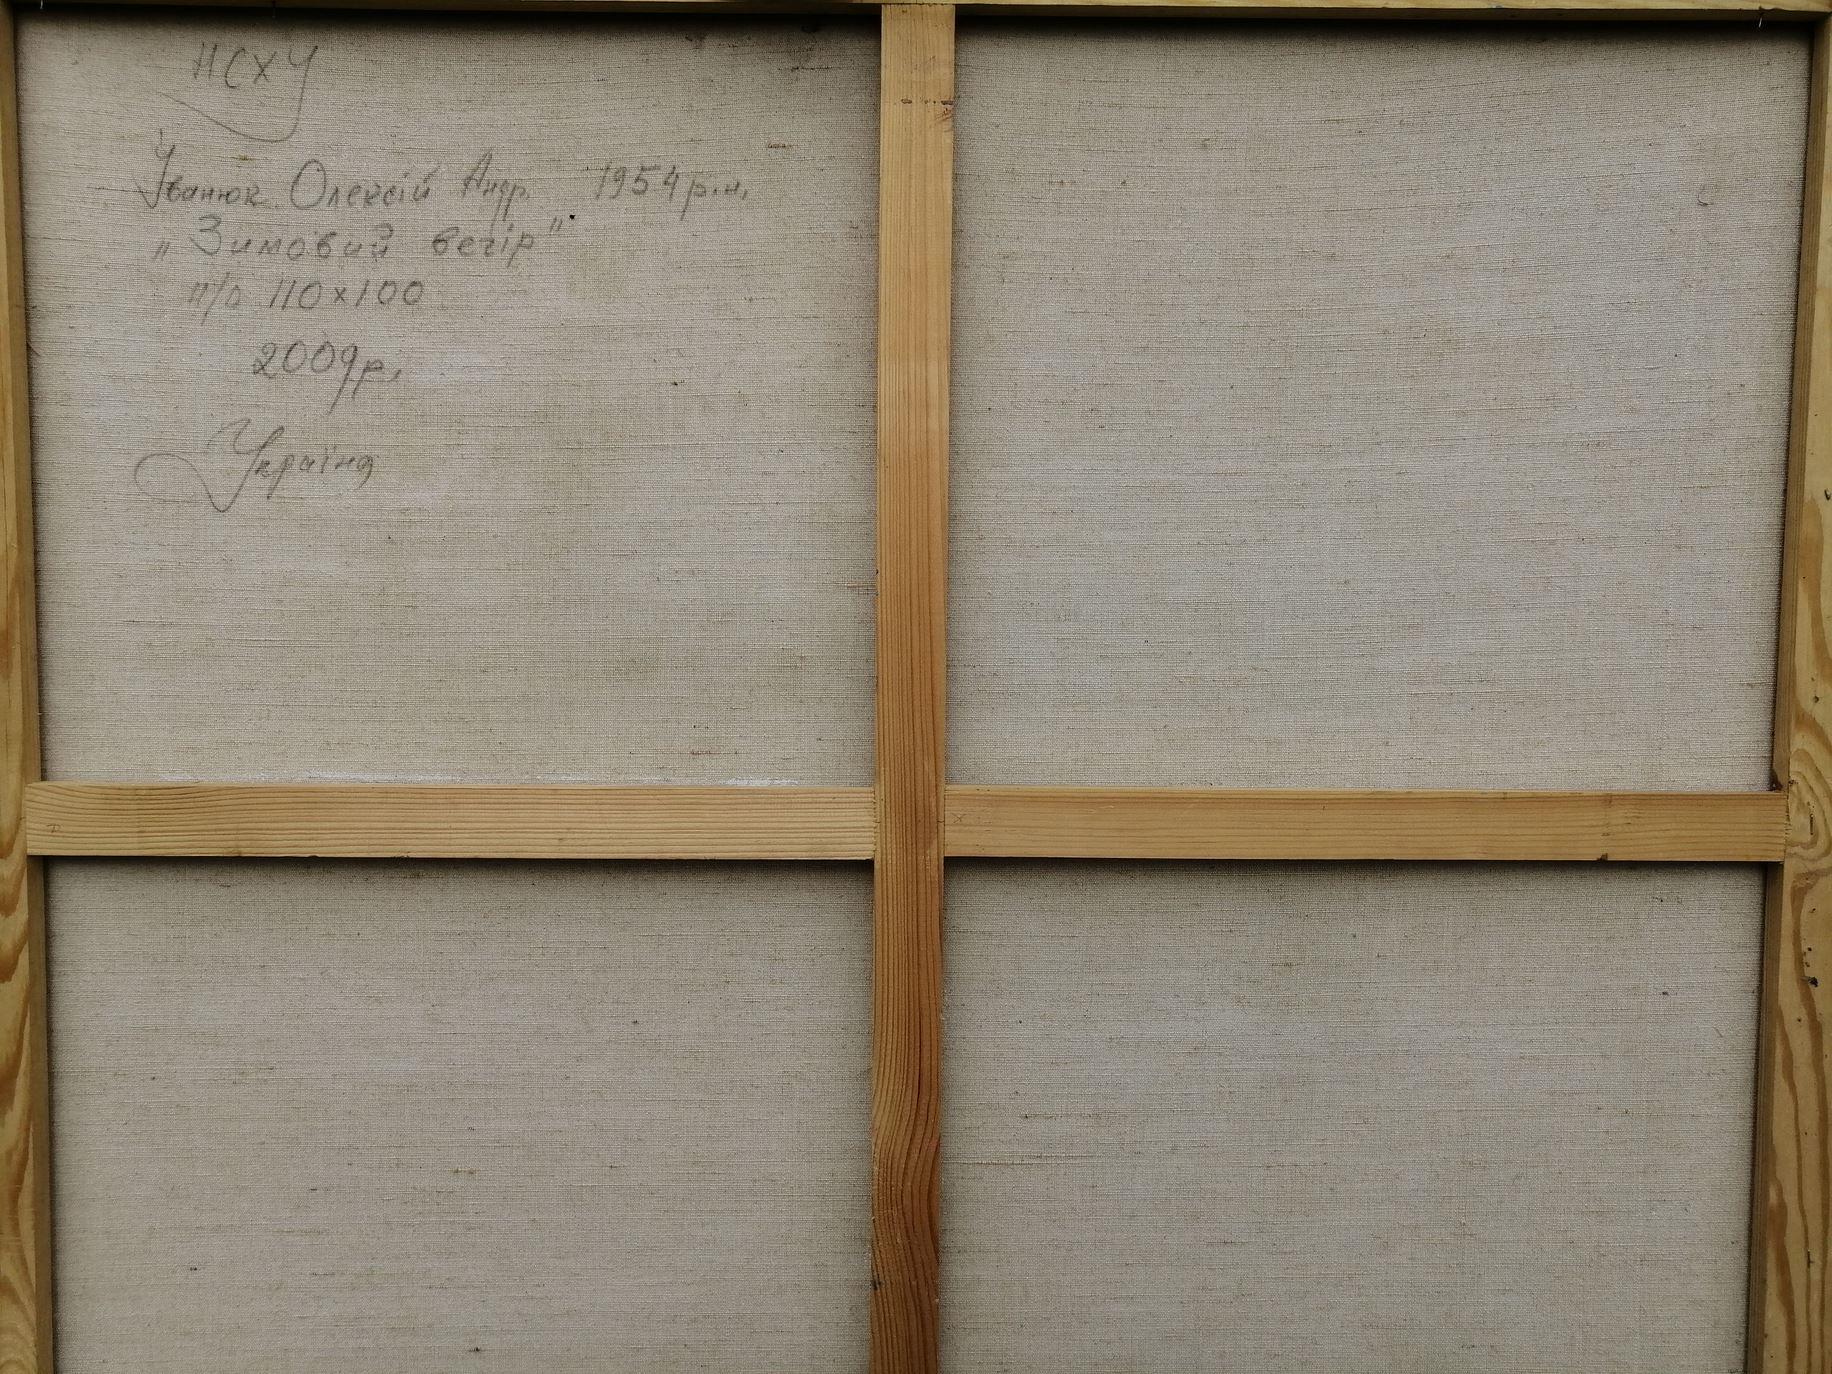 НСХУ
Іванюк Олексій Андр. 1954 р.н.
„Зимовий вечір"
п/о 110х100
2009р.
Україна